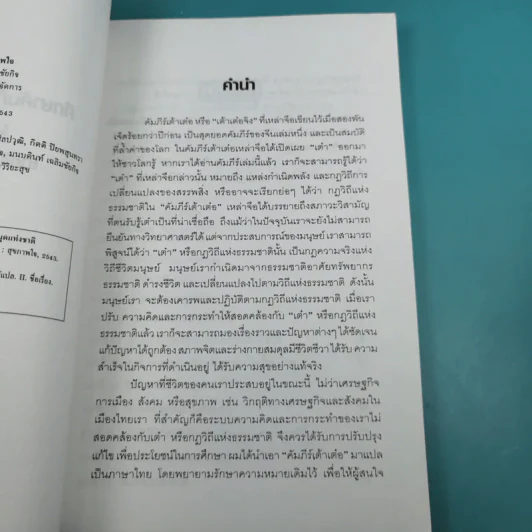 พใจ
ชัยกิจ
จัดการ
2543
ลปวุฒิ, กิตติ ปิยพสุนทรา
จ, มนนบดินท์ เฉลิมชัยกิจ
วิริยะสุข
มุดแห่งชาติ
: สุขภาพใจ, 2543.
แปล. II. ชื่อเรื่อง.
คำนำ
คัมภีร์เต้าเต๋อ หรือ “เต้าเต๋อจิง” ที่เหล่าจื๊อเขียนไว้เมื่อสองพัน
เจ็ดร้อยกว่าปีก่อน เป็นสุดยอดคัมภีร์ของจีนเล่มหนึ่ง และเป็นสมบัติ
ที่ล้ำค่าของโลก ในคัมภีร์เต้าเต๋อเหล่าจื๊อได้เปิดเผย “เต๋า” ออกมา
ให้ชาวโลกรู้ หากเราได้อ่านคัมภีร์เล่มนี้แล้ว เราก็จะสามารถรู้ได้ว่า
“เต๋า” ที่เหล่าจื๊อกล่าวนั้น หมายถึง แหล่งกำเนิดพลัง และกฎวิถีการ
เปลี่ยนแปลงของสรรพสิ่ง หรืออาจจะเรียกย่อๆ ได้ว่า กฎวิถีแห่ง
ธรรมชาติใน “คัมภีร์เต้าเต๋อ” เหล่าจื๊อได้บรรยายถึงสภาวะวิสามัญ
ที่ตนรับรู้เต๋าเป็นที่น่าเชื่อถือ ถึงแม้ว่าในปัจจุบันเราจะยังไม่สามารถ
ยืนยันทางวิทยาศาสตร์ได้ แต่จากประสบการณ์ของมนุษย์ เราสามารถ
พิสูจน์ได้ว่า “เต๋า” หรือกฎวิถีแห่งธรรมชาตินั้น เป็นกฎความจริงแห่ง
วิถีชีวิตมนุษย์ มนุษย์เรากำเนิดมาจากธรรมชาติอาศัยทรัพยากร
ธรรมชาติ ดำรงชีวิต และเปลี่ยนแปลงไปตามวิถีแห่งธรรมชาติ ดังนั้น
มนุษย์เรา จะต้องเคารพและปฏิบัติตามกฎวิถีแห่งธรรมชาติ เมื่อเรา
ปรับ ความคิดและการกระทำให้สอดคล้องกับ “เต๋า” หรือกฎวิถีแห่ง
ธรรมชาติแล้ว เราก็จะสามารถมองเรื่องราวและปัญหาต่างๆ ได้ชัดเจน
แก้ปัญหาได้ถูกต้อง สภาพจิตและร่างกายสมดุลมีชีวิตชีวา ได้รับ ความ
สำเร็จในกิจการที่ดำเนินอยู่ ได้รับความสุขอย่างแท้จริง
ปัญหาที่ชีวิตของคนเราประสบอยู่ในขณะนี้ ไม่ว่าเศรษฐกิจ
การเมือง สังคม หรือสุขภาพ เช่น วิกฤติทางเศรษฐกิจและสังคมใน
เมืองไทยเรา ที่สำคัญก็คือระบบความคิดและการกระทำของเราไม่
สอดคล้องกับเต๋า หรือกฎวิถีแห่งธรรมชาติ จึงควรได้รับการปรับปรุง
แก้ไข เพื่อประโยชน์ในการศึกษา ผมได้นำเอา “คัมภีร์เต้าเต๋อ” มาแปล
เป็นภาษาไทย โดยพยายามรักษาความหมายเดิมไว้ เพื่อให้ผู้สนใจ